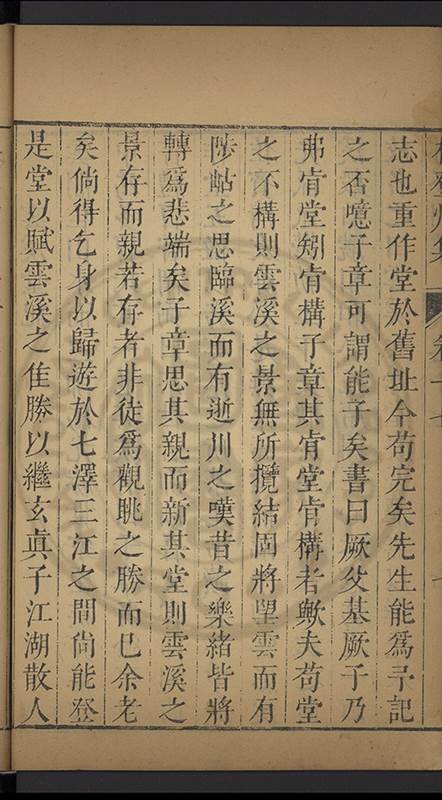 志也重作堂於舊址今苟完矣先生能爲予記
之否噫子章可謂能子矣書曰厥父基厥子乃
弗肯堂矧肯構子章其肯堂肯構者歟夫苟堂
之不構則雲溪之景無所攬結固將望雲而有
陟岵之思臨溪而有逝川之嘆昔之樂緒皆將
轉爲悲端矣子章思其親而新其堂則雲溪之
景存而親若存者非徒爲觀眺之勝而已余老
矣倘得乞身以歸遊於七澤三江之間尙能登
是堂以賦雲溪之隹勝以繼玄眞子江湖散人